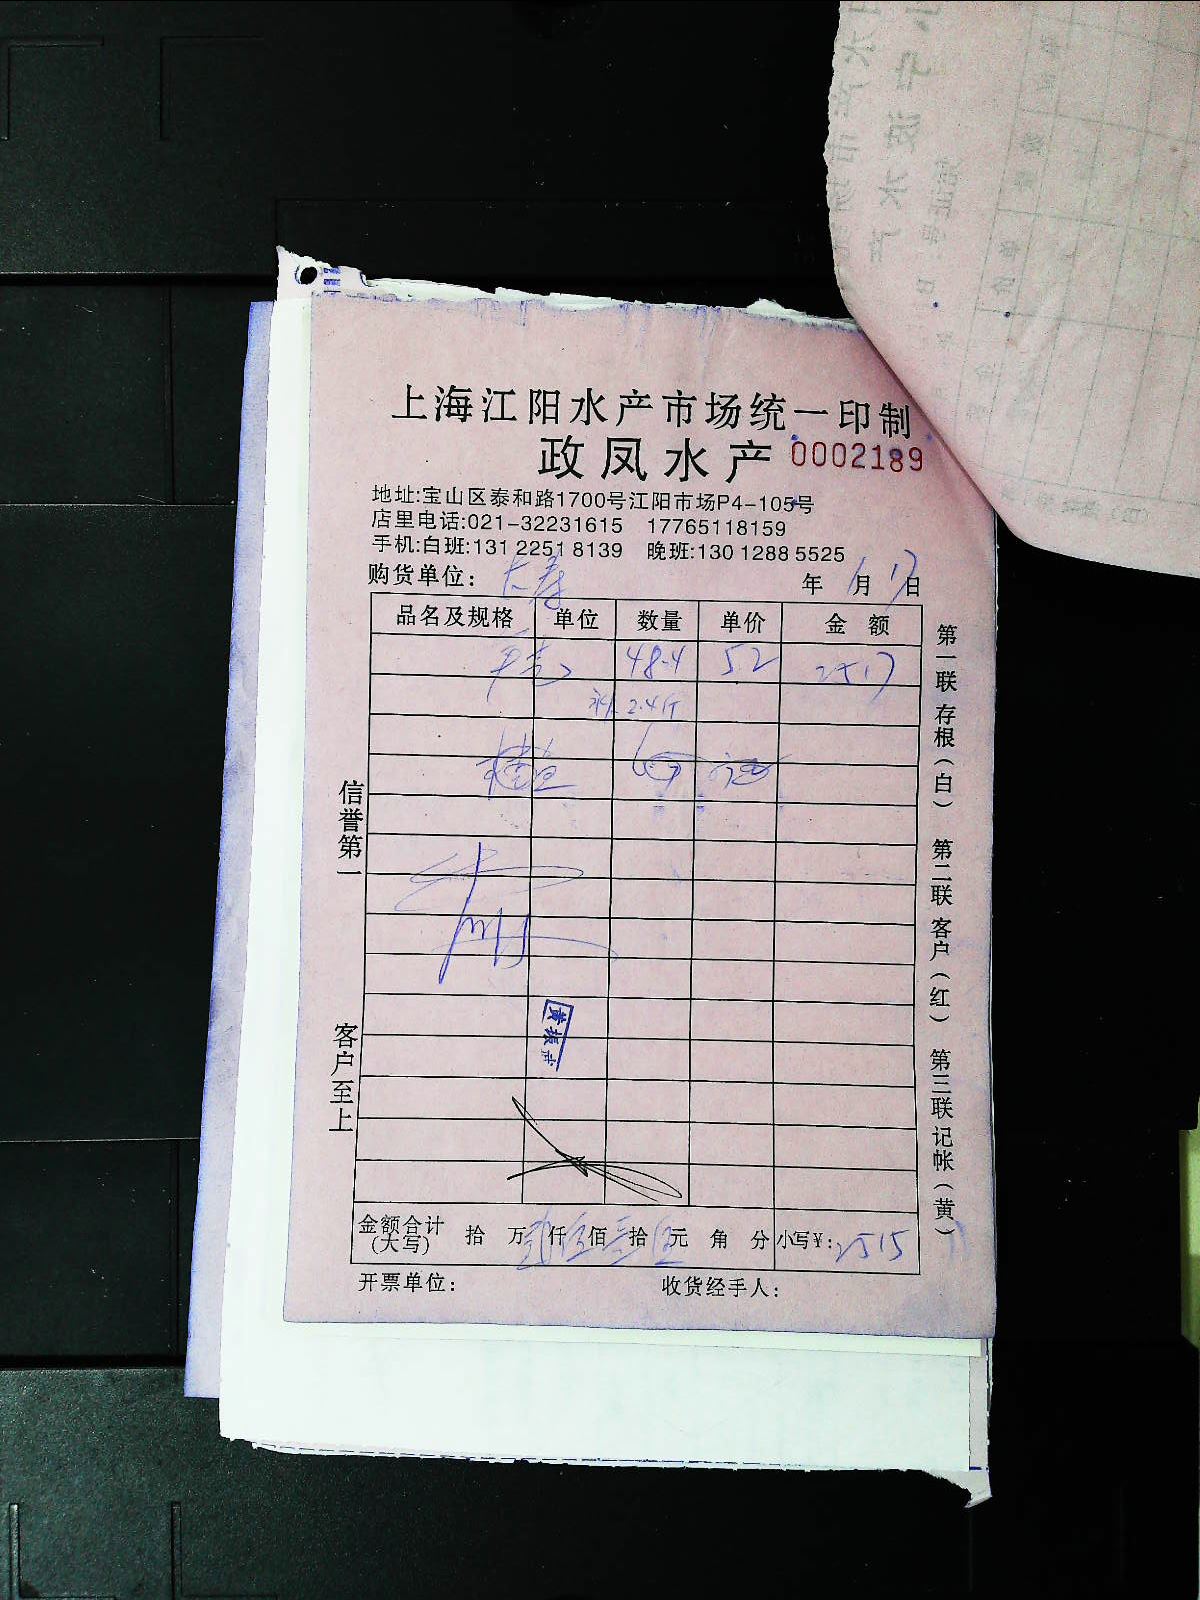 上海江阳水产市场统一印制
政凤水产 0002189
地址:宝山区泰和路1700号江阳市场P4-105号
店里电话:021-32231615 17765118159
手机:白班:131 2251 8139 晚班:130 1288 5525
购货单位: 年 1月17日
品名及规格 单位 数量 单价 金额
48.4 52 2517
补 2.4斤
信誉第一
客户至上
黄
第一联存根(白) 第二联客户(红) 第三联记帐(黄)
金额合计(大写) 拾 万 贰仟伍佰壹拾伍元 角 分 小写¥: 2515
开票单位: 收货经手人: